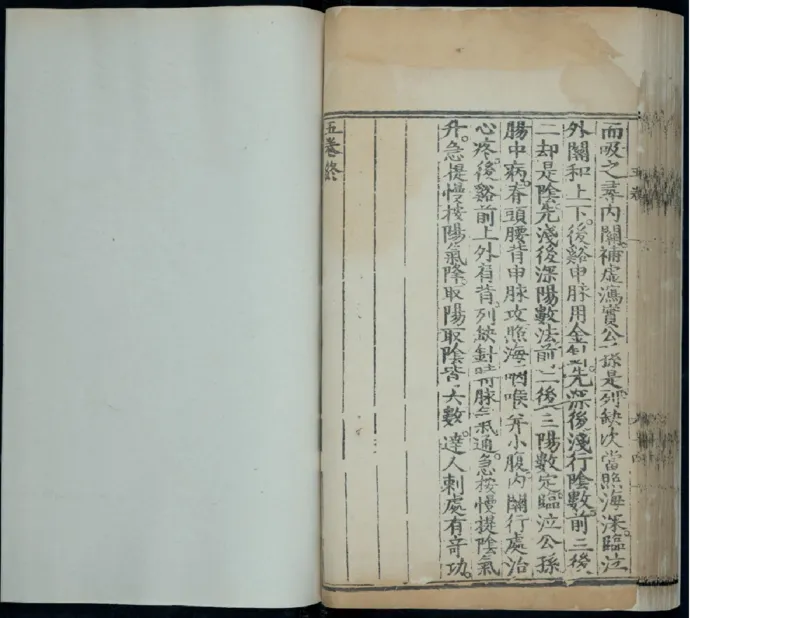 而吸之尋內關補虛瀉實公孫是列缺次當照海深臨泣
外關和上下。後谿申脉用金針先深後淺行陰數。前三後
二却是陰先淺後深陽數法前二後三陽數定。臨泣公孫
腸中病。脊頭腰背申脉攻照海咽喉并小腹。內關行處治
心疼。後谿前上外肩背。列缺針時脉氣通。急按慢提陰氣
升。急提慢按陽氣降。取陽取陰皆六數。達人刺處有奇功。
五卷終